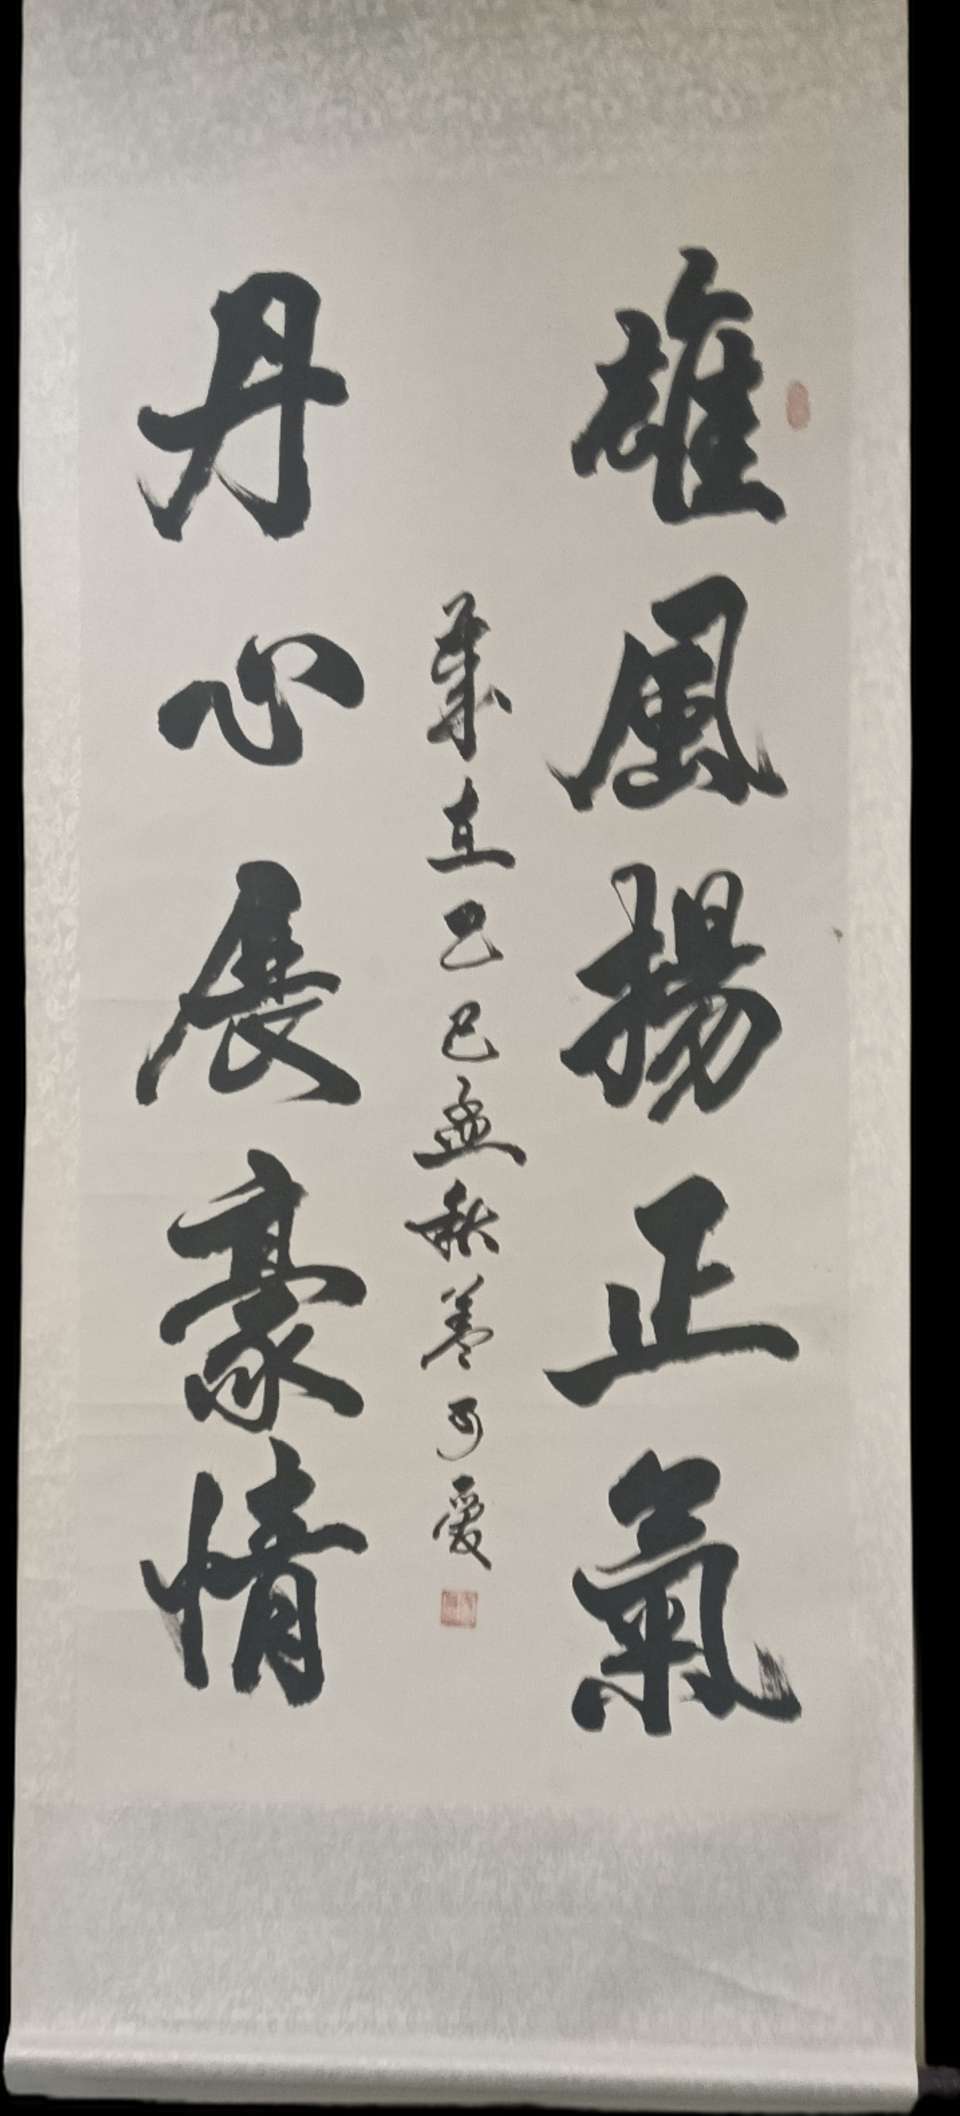 雄風揚正氣
丹心展豪情
歲在乙巳孟秋姜可愛